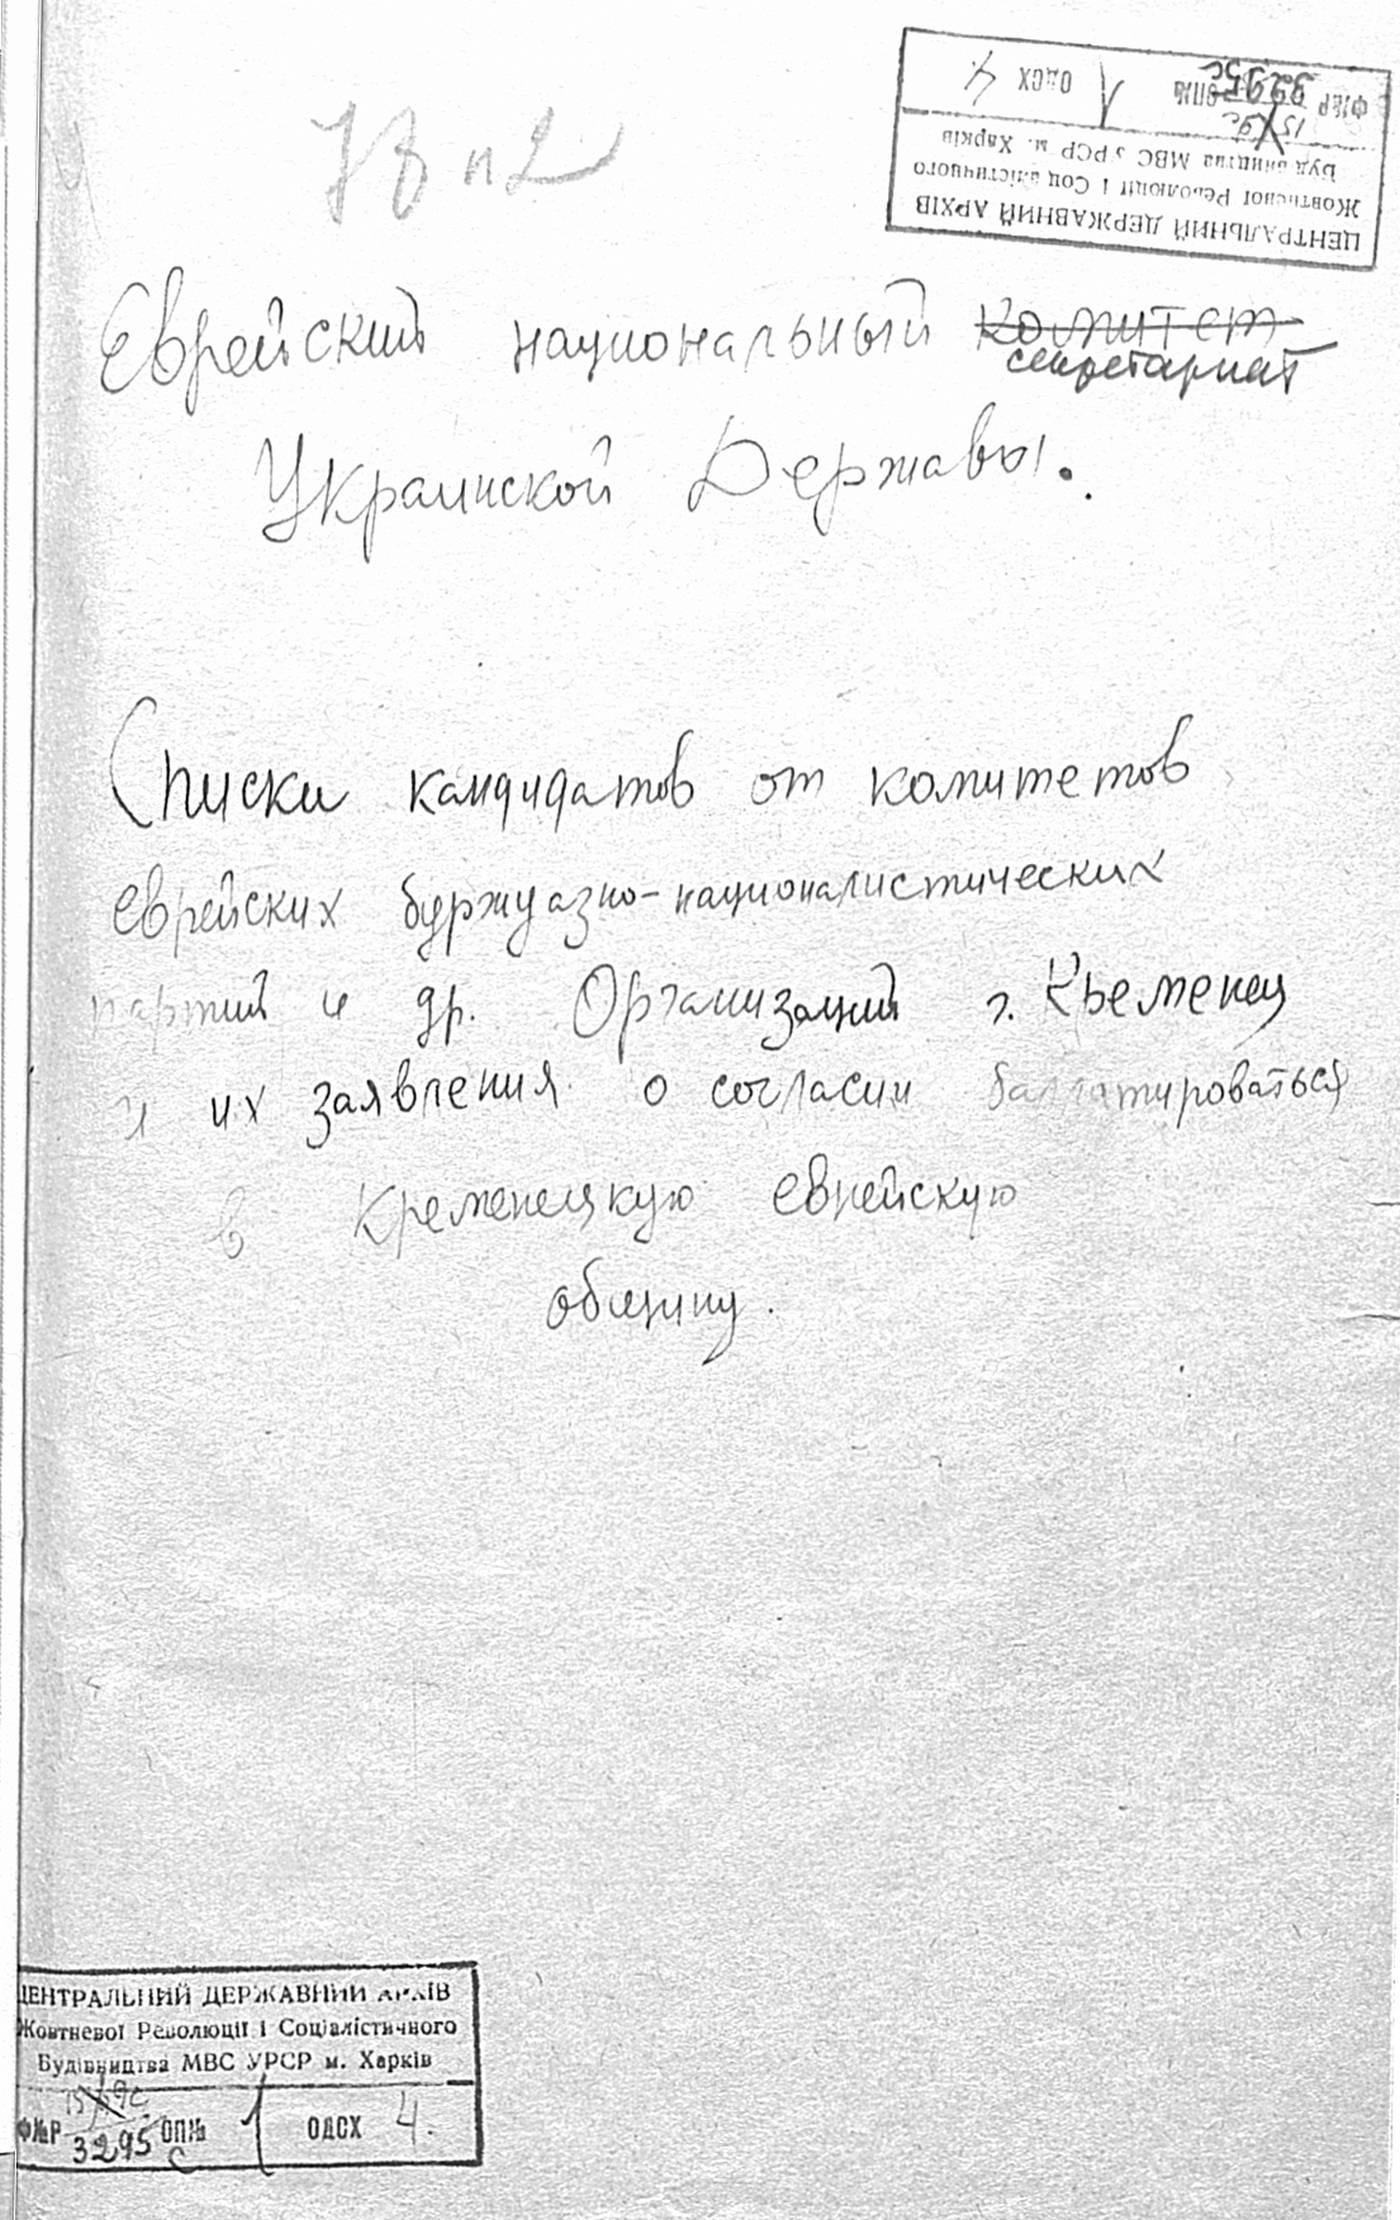 ЦЕНТРАЛЬНИЙ ДЕРЖАВНИЙ АРХІВ
Жовтневої Революції і Соціалістичного
Будівництва МВС УРСР м. Харків
Ф№Р 3295с ОП№ 1 ОДСХ 4
Еврейский национальный комитет
секретариат
Украинской Державы.
Списки кандидатов от комитетов
еврейских буржуазно-националистических
партий и др. Организаций г. Кременец
и их заявления о согласии баллотироваться
в Кременецкую еврейскую
общину.
ЦЕНТРАЛЬНИЙ ДЕРЖАВНИЙ АРХІВ
Жовтневої Революції і Соціалістичного
Будівництва МВС УРСР м. Харків
Ф№Р 3295с ОП№ 1 ОДСХ 4.